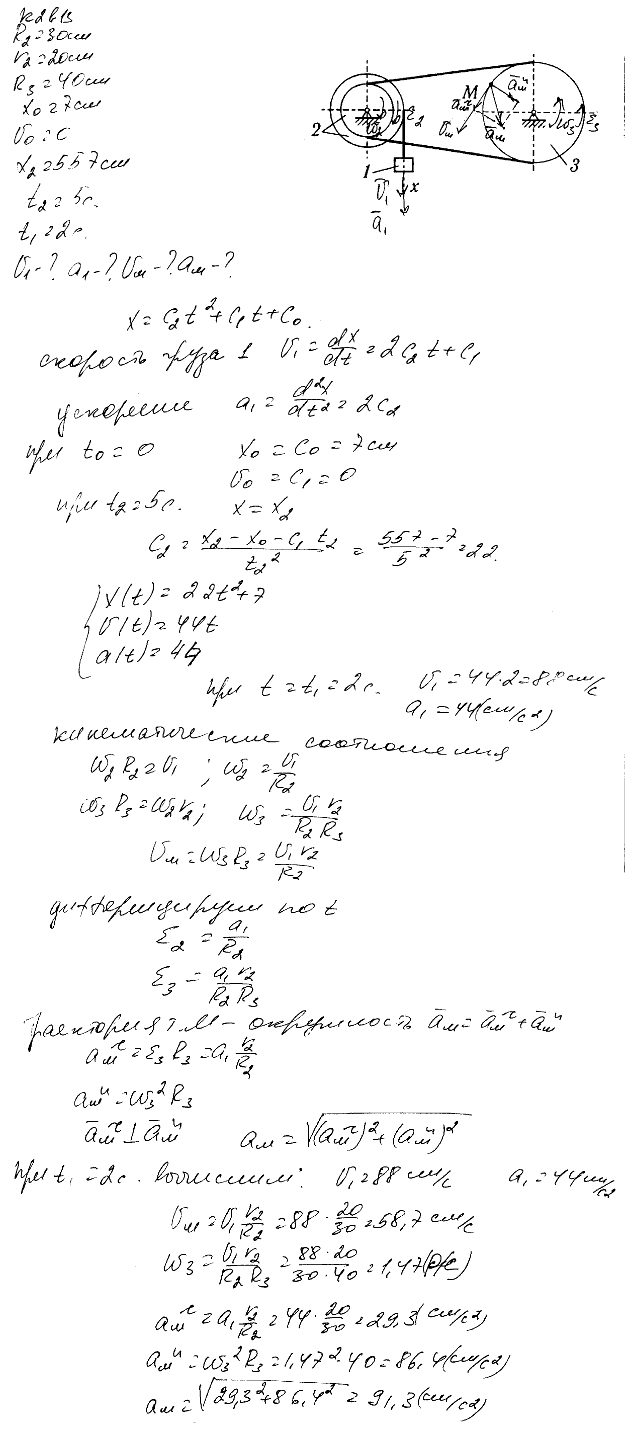 к2в13
R₂=30см
r₂=20см
R₃=40см
x₀=7см
v₀=0
x₂=557см
t₂=5с.
t₁=2с.
v₁-? a₁-? vм-? aм-?
2 ω₂ ε₂ 1 v̄₁ x ā₁ M āмⁿ āмᵗ v̄м āм ω₃ ε₃ 3
x=C₂t²+C₁t+C₀.
скорость груза 1 v₁=dx/dt=2C₂t+C₁
ускорение a₁=d²x/dt²=2C₂
при t₀=0 x₀=C₀=7см
v₀=C₁=0
при t₂=5с. x=x₂
C₂=(x₂-x₀-C₁t₂)/t₂²=(557-7)/5²=22.
x(t)=22t²+7
v(t)=44t
a(t)=44
при t=t₁=2с. v₁=44·2=88см/с
a₁=44(см/с²)
кинематические соотношения
ω₂R₂=v₁; ω₂=v₁/R₂
ω₃R₃=ω₂r₂; ω₃=v₁r₂/R₂R₃
vм=ω₃R₃=v₁r₂/R₂
дифференцируем по t
ε₂=a₁/R₂
ε₃=a₁r₂/R₂R₃
траектория т.М - окружность āм=āмᵗ+āмⁿ
aмᵗ=ε₃R₃=a₁r₂/R₂
aмⁿ=ω₃²R₃
āмᵗ⊥āмⁿ aм=√((aмᵗ)²+(aмⁿ)²)
при t₁=2с. вычислим: v₁=88см/с a₁=44см/с²
vм=v₁r₂/R₂=88·20/30=58,7см/с
ω₃=v₁r₂/R₂R₃=88·20/30·40=1,47(р/с)
aмᵗ=a₁r₂/R₂=44·20/30=29,3(см/с²)
aмⁿ=ω₃²R₃=1,47²·40=86,4(см/с²)
aм=√(29,3²+86,4²)=91,3(см/с²)